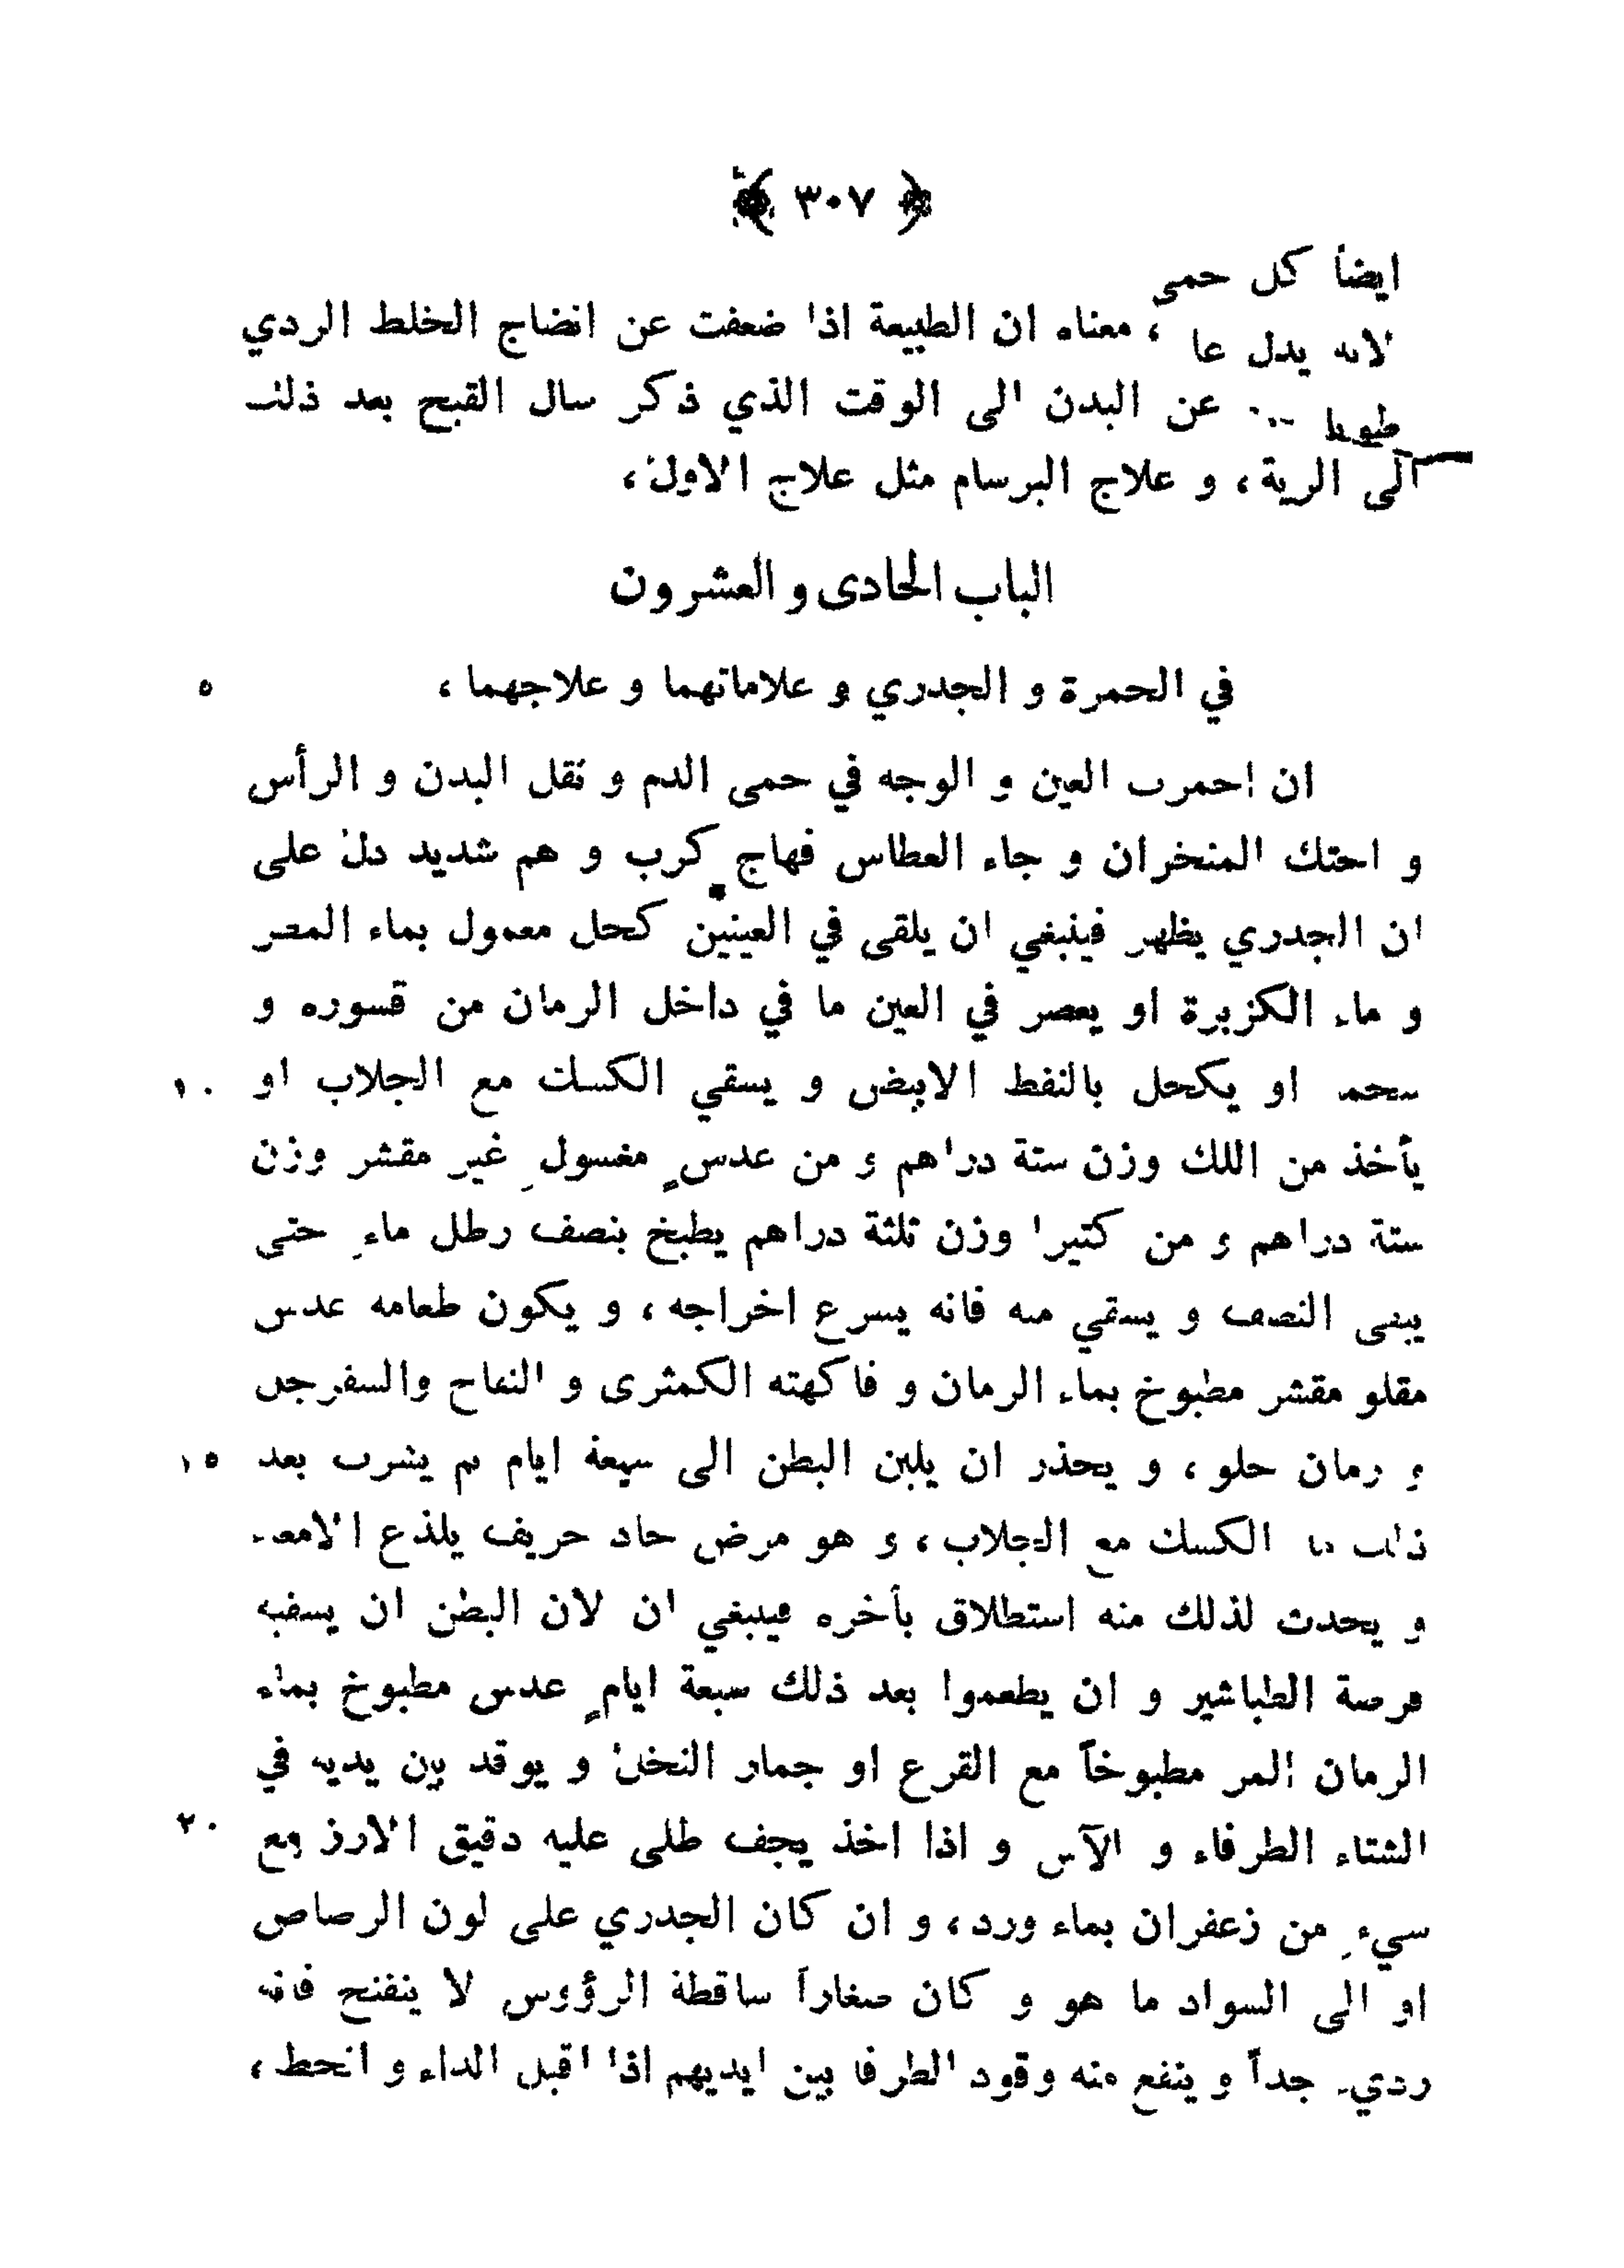 ﴿ ٣٠٧ ﴾
ايضاً كل حمى
لانه يدل ، معناه ان الطبيعة اذا ضعفت عن انضاج الخلط الردي
عن البدن الى الوقت الذي ذكر سال القيح بعد ذلك
الى الرية ، و علاج البرسام مثل علاج الاول ،
الباب الحادى و العشرون
في الحمرة و الجدري و علاماتهما و علاجهما ، ٥
ان احمرت العين و الوجه في حمى الدم و ثقل البدن و الرأس
و احتك المنخران و جاء العطاس فهاج كرب و هم شديد دل على
ان الجدري يظهر فينبغي ان يلقى في العينين كحل معمول بماء
و ماء الكزبرة او يعصر في العين ما في داخل الرمان من قسوره و
او يكحل بالنفط الابيض و يسقي الكسك مع الجلاب او ١٠
يأخذ من اللك وزن ستة دراهم و من عدسٍ مغسولِ غير مقشر وزن
ستة دراهم و من كتيرا وزن ثلثة دراهم يطبخ بنصف رطل ماءِ حتى
يبقى النصف و يسقي منه فانه يسرع اخراجه ، و يكون طعامه عدس
مقلو مقشر مطبوخ بماء الرمان و فاكهته الكمثرى و التفاح والسفرجل
و رمان حلو ، و يحذر ان يلين البطن الى سبعة ايام ثم يشرب بعد ١٥
ذلك ما الكسك مع الجلاب ، و هو مرض حاد حريف يلذع الامعاء
و يحدث لذلك منه استطلاق بأخره فينبغي ان لان البطن ان يسقيه
قرصة الطباشير و ان يطعموا بعد ذلك سبعة ايامٍ عدس مطبوخ بماء
الرمان المر مطبوخاً مع القرع او جمار النخل و يوقد بين يديه في
الشتاء الطرفاء و الآس و اذا اخذ يجف طلى عليه دقيق الارز مع ٢٠
سيءِ من زعفران بماء ورد ، و ان كان الجدري على لون الرصاص
او الى السواد ما هو و كان صغاراً ساقطة الرؤوس لا ينفتح فانه
رديء جداً و ينفع منه وقود الطرفا بين ايديهم اذا اقبل الداء و انحط ،